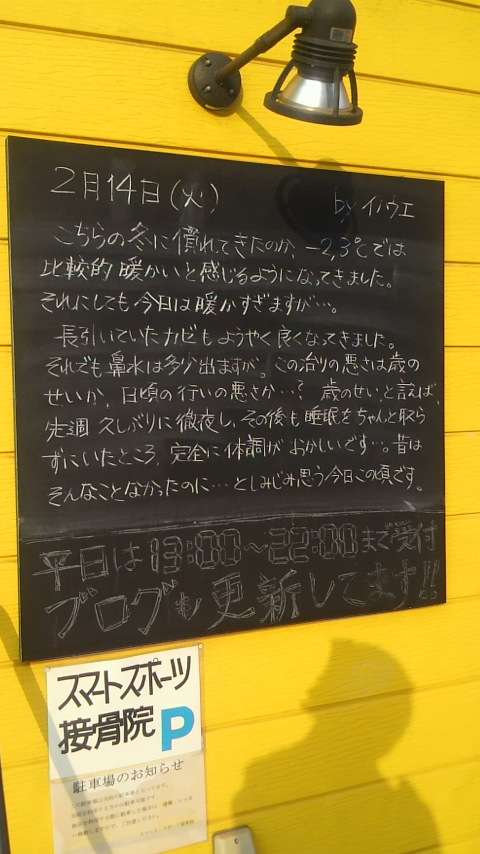 2月14日(火) by イノウエ
こちらの冬に慣れてきたのか、-2,3℃では
比較的暖かいと感じるようになってきました。
それにしても今日は暖かすぎますが…。
長引いていたカビもようやく良くなってきました。
それでも鼻水は多少出ますが。この治りの悪さは歳の
せいか、日頃の行いの悪さか…? 歳のせいと言えば、
先週久しぶりに徹夜し、その後も睡眠をちゃんと取ら
ずにいたところ、完全に体調がおかしいです…。昔は
そんなことなかったのに…としみじみ思う今日この頃です。
平日は13:00〜22:00まで受付
ブログも更新してます!!
スマートスポーツ
接骨院 P
駐車場のお知らせ